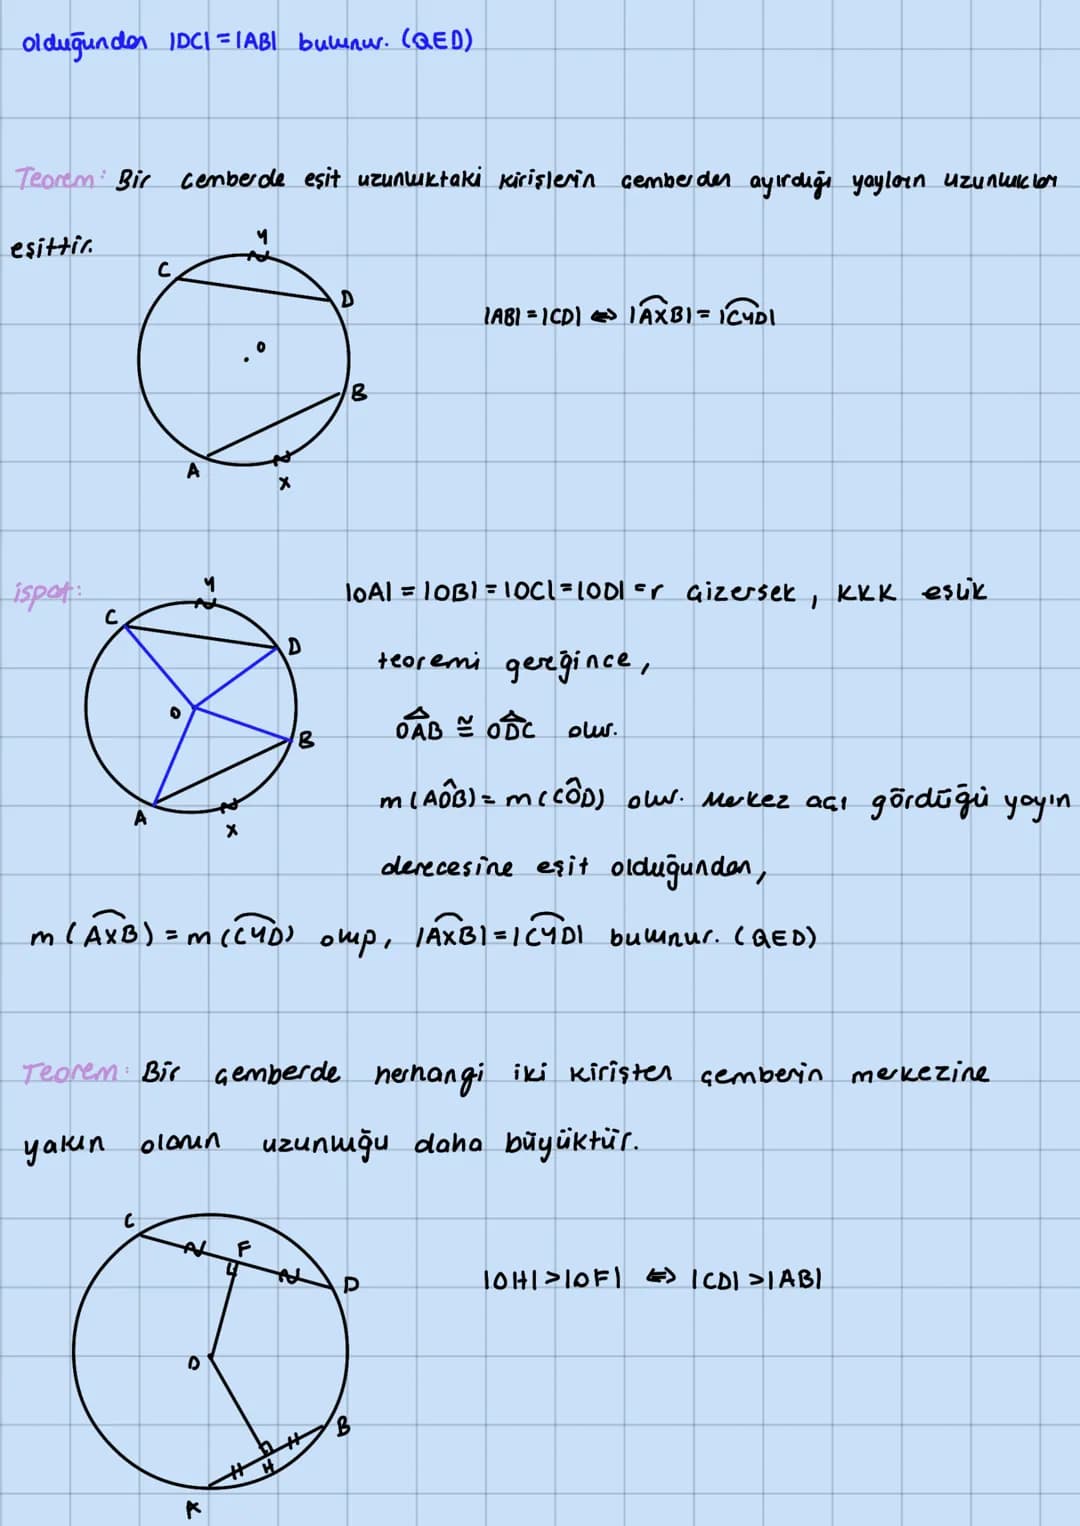 olduğundan |DC| = |AB| bulunur. (QED)
Teorem: Bir çemberde eşit uzunluktaki kirişlerin çemberden ayırdığı yayların uzunlukları
eşittir.
Y
C
D
O
B
A
X
|AB| = |CD| ⇔ |AXB| = |CYD|
ispat:
Y
C
D
O
B
A
X
|OA| = |OB| = |OC| = |OD| = r çizersek, KKK eşlik
teoremi gereğince,
OAB ≅ ODC olur.
m(AOB) = m(COD) olur. Merkez açı gördüğü yayın
derecesine eşit olduğundan,
m(AXB) = m(CYD) olup, |AXB| = |CYD| bulunur. (QED)
Teorem: Bir çemberde herhangi iki kirişten çemberin merkezine
yakın olanın uzunluğu daha büyüktür.
C
F
D
O
B
H
A
|OH| > |OF| ⇔ |CD| > |AB|